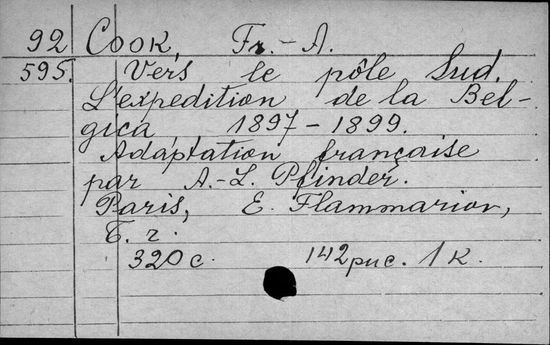 92 Cook, Fr.-A.
595. Vers le pôle Sud.
L'expedition de la Bel-
gica, 1897-1899.
Adaptation française
par A.-L. Pfinder.
Paris, E. Flammarion,
б. г.
320 с. 142 рис. 1 к.